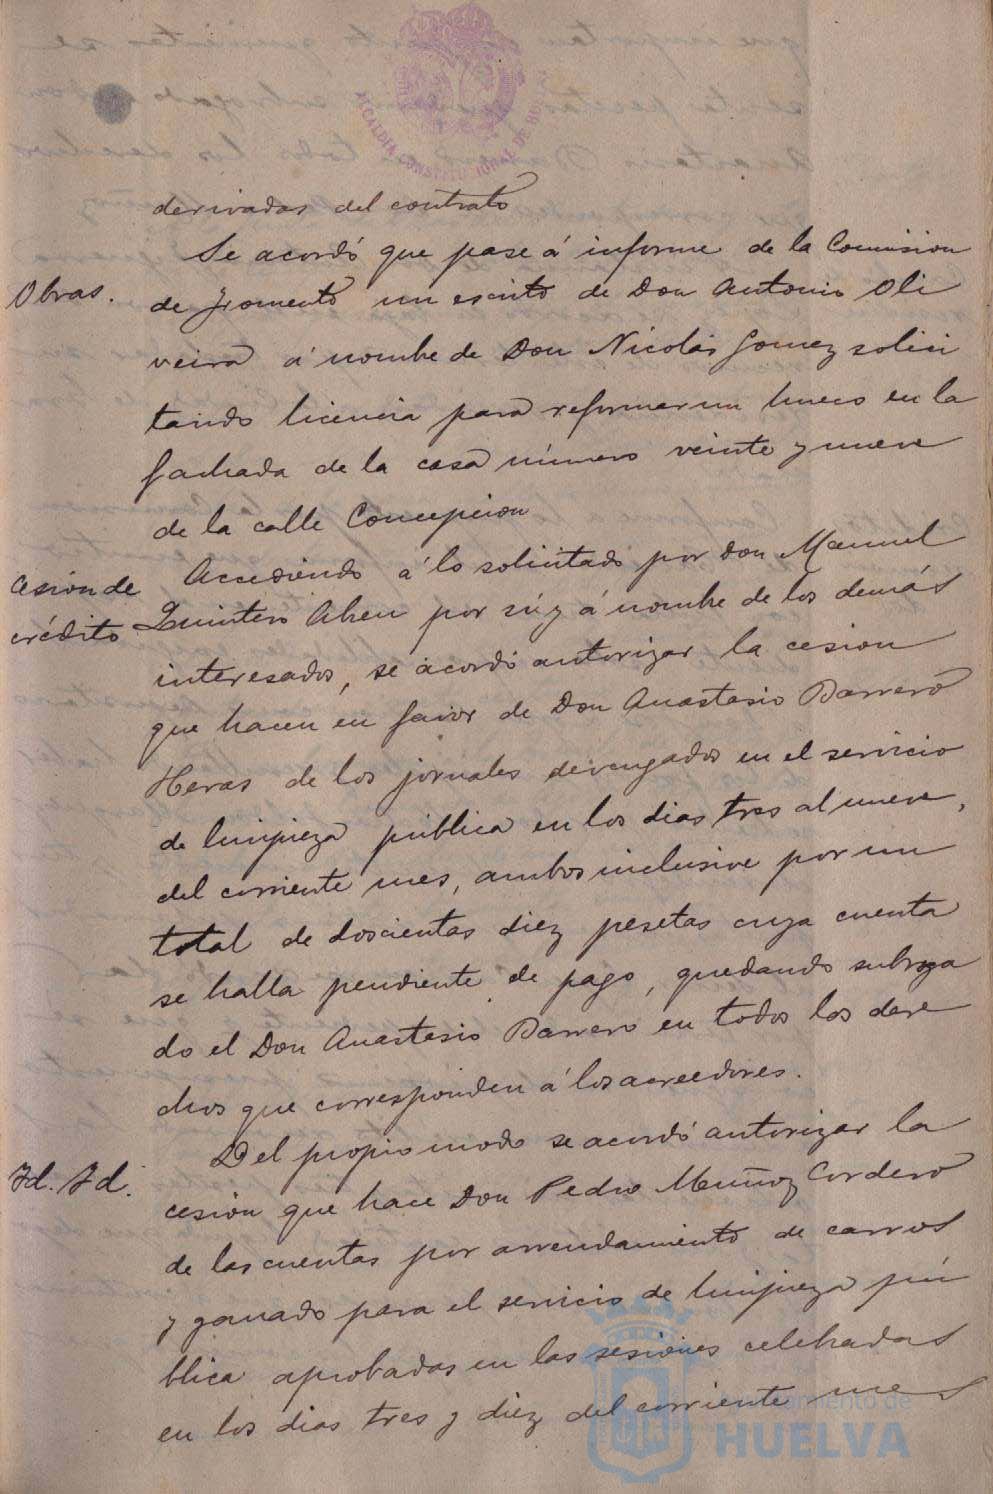 ALCALDIA CONSTITUCIONAL DE HUELVA
derivadas del contrato
Se acordó que pase á informe de la Comision
Obras.
de Fomento un escrito de Don Antonio Oli
veira á nombre de Don Nicolás Gomez solici
tando licencia para reformar un hueco en la
fachada de la casa número veinte y nueve
de la calle Concepcion
Accediendo á lo solicitado por Don Manuel
Cesion de
crédito
Quintero Abreu por sí y á nombre de los demás
interesados, se acordó autorizar la cesion
que hacen en favor de Don Anastasio Barrero
Heras de los jornales devengados en el servicio
de limpieza pública en los dias tres al nueve,
del corriente mes, ambos inclusive por un
total de doscientas diez pesetas cuya cuenta
se halla pendiente de pago, quedando subroga
do el Don Anastasio Barrero en todos los dere
chos que corresponden á los acreedores.
Del propio modo se acordó autorizar la
Id. Id.
cesion que hace Don Pedro Muñoz Cordero
de las cuentas por arrendamiento de carros
y ganado para el servicio de limpieza pú
blica aprobadas en las sesiones celebradas
en los dias tres y diez del corriente mes
Ayuntamiento de
HUELVA